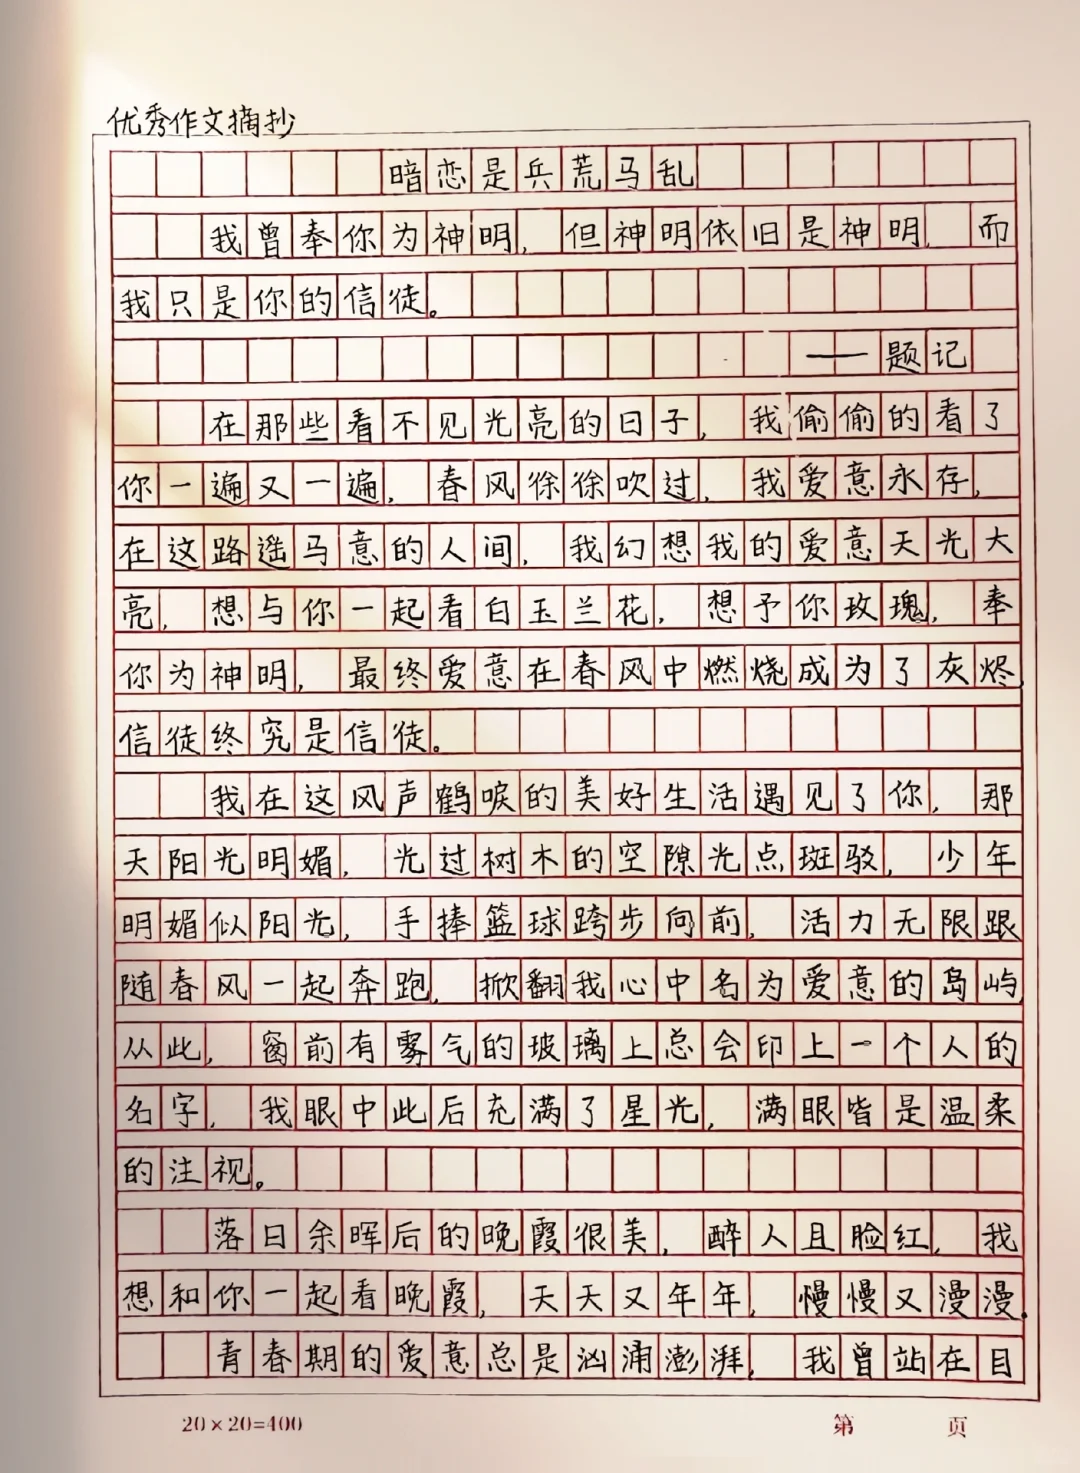 优秀作文摘抄
暗恋是兵荒马乱
我曾奉你为神明，但神明依旧是神明，而
我只是你的信徒。
——题记
在那些看不见光亮的日子，我偷偷的看了
你一遍又一遍，春风徐徐吹过，我爱意永存，
在这路遥马意的人间，我幻想我的爱意天光大
亮，想与你一起看白玉兰花，想予你玫瑰，奉
你为神明，最终爱意在春风中燃烧成为了灰烬，
信徒终究是信徒。
我在这风声鹤唳的美好生活遇见了你，那
天阳光明媚，光过树木的空隙光点斑驳，少年
明媚似阳光，手捧篮球跨步向前，活力无限跟
随春风一起奔跑，掀翻我心中名为爱意的岛屿
从此，窗前有雾气的玻璃上总会印上一个人的
名字，我眼中此后充满了星光，满眼皆是温柔
的注视。
落日余晖后的晚霞很美，醉人且脸红，我
想和你一起看晚霞，天天又年年，慢慢又漫漫.
青春期的爱意总是汹涌澎湃，我曾站在目
20×20=400
第 页